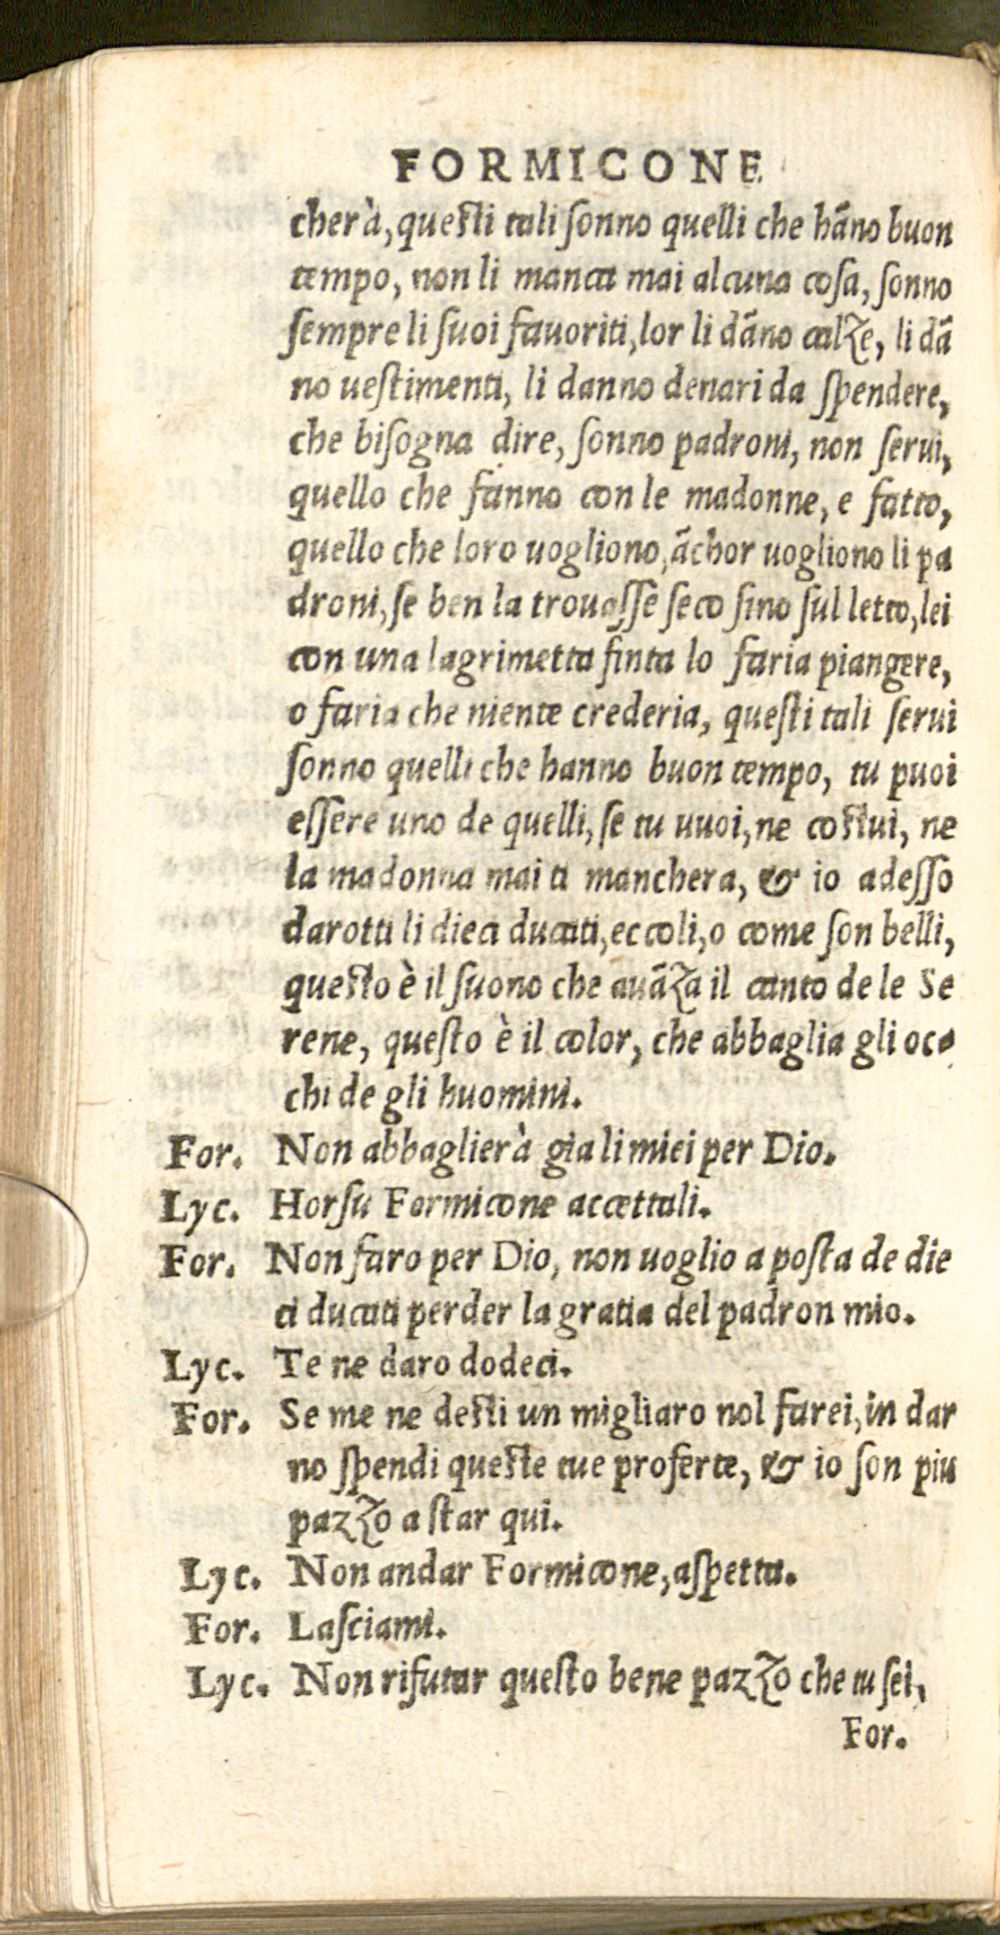 FORMICONE
cherà, questi tali sonno quelli che hāno buon
tempo, non li manca mai alcuna cosa, sonno
sempre li suoi fauoriti, lor li dāno calze, li dā
no uestimenti, li danno denari da spendere,
che bisogna dire, sonno padroni, non serui,
quello che fanno con le madonne, e fatto,
quello che loro uogliono, āchor uogliono li pa
droni, se ben la trouasse seco sino sul letto, lei
con una lagrimetta finta lo faria piangere,
o faria che niente crederia, questi tali serui
sonno quelli che hanno buon tempo, tu puoi
essere uno de quelli, se tu uuoi, ne costui, ne
la madonna mai ti manchera, & io adesso
darotti li dieci ducati, eccoli, o come son belli,
questo è il suono che auāza il canto de le Se
rene, questo è il color, che abbaglia gli oc‑
chi de gli huomini.
For. Non abbaglierà gia li miei per Dio.
Lyc. Horsu Formicone accettali.
For. Non faro per Dio, non uoglio a posta de die
ci ducati perder la gratia del padron mio.
Lyc. Te ne daro dodeci.
For. Se me ne desti un migliaro nol farei, in dar
no spendi queste tue proferte, & io son piu
pazzo a star qui.
Lyc. Non andar Formicone, aspetta.
For. Lasciami.
Lyc. Non rifutar questo bene pazzo che tu sei,
For.